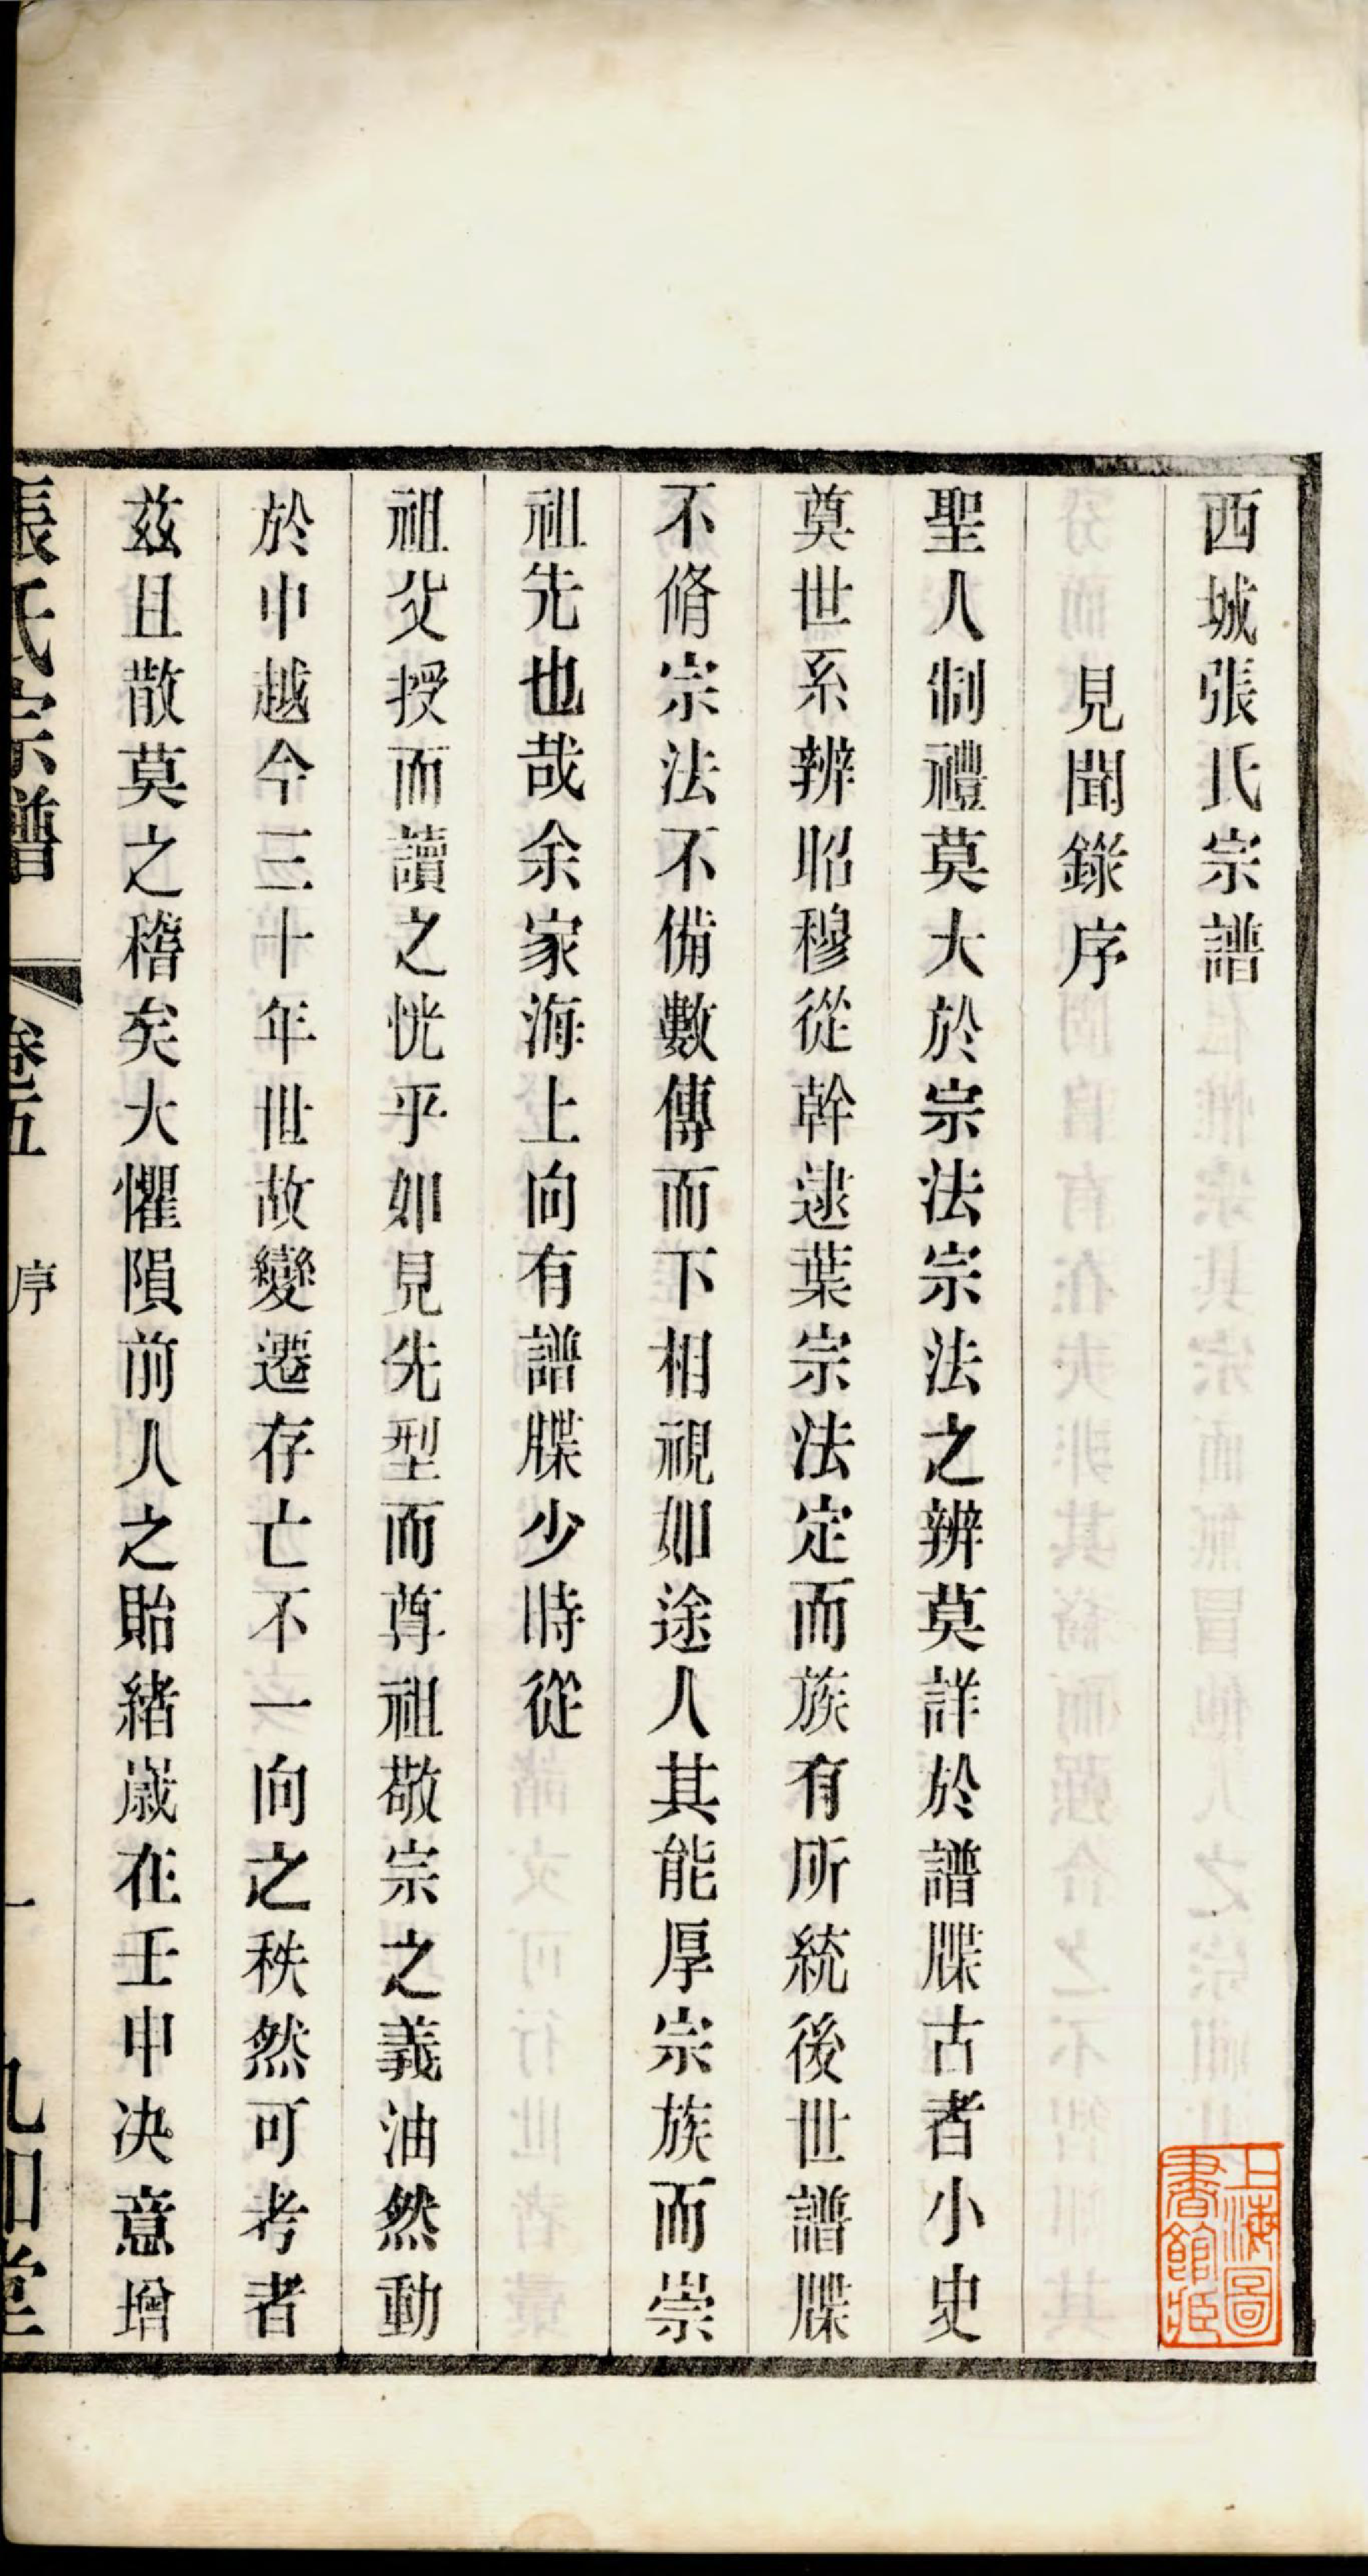 西城張氏宗譜
見聞錄序
聖人制禮莫大於宗法宗法之辨莫詳於譜牒古者小史
奠世系辨昭穆從幹逮葉宗法定而族有所統後世譜牒
不脩宗法不備數傳而下相視如途人其能厚宗族而崇
祖先也哉余家海上向有譜牒少時從
祖父授而讀之恍乎如見先型而尊祖敬宗之義油然動
於中越今三十年世故變遷存亡不一向之秩然可考者
茲且散莫之稽矣大懼隕前人之貽緒歲在壬申决意增
張氏宗譜
卷五
序
一
上海圖
書館藏